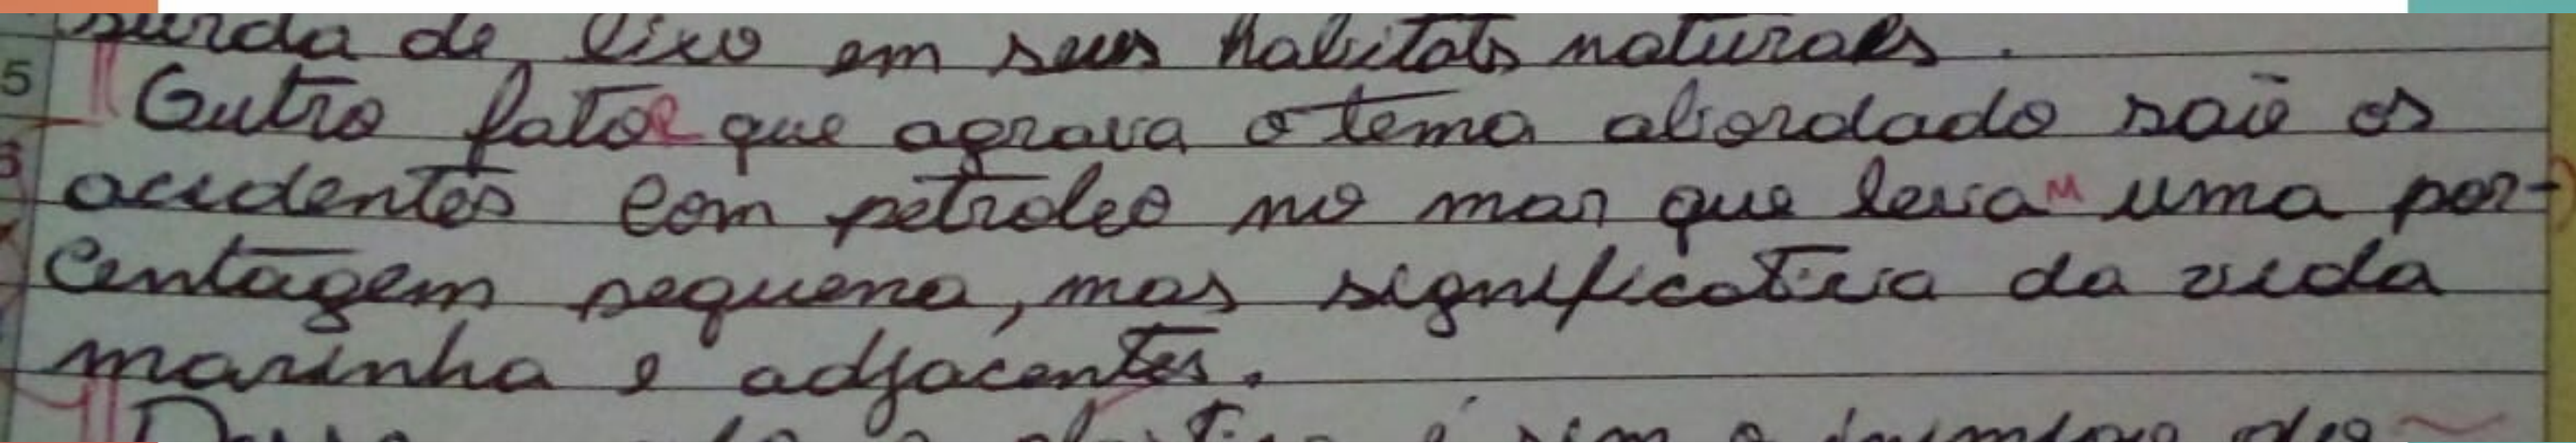 surda de lixo em seus habitats naturais.
5
Outro fator que agrava o tema abordado são os
acidentes com petroleo no mar que levam uma por-
centagem pequena, mas significativa da vida
marinha e adjacentes.
é sim o inimigo